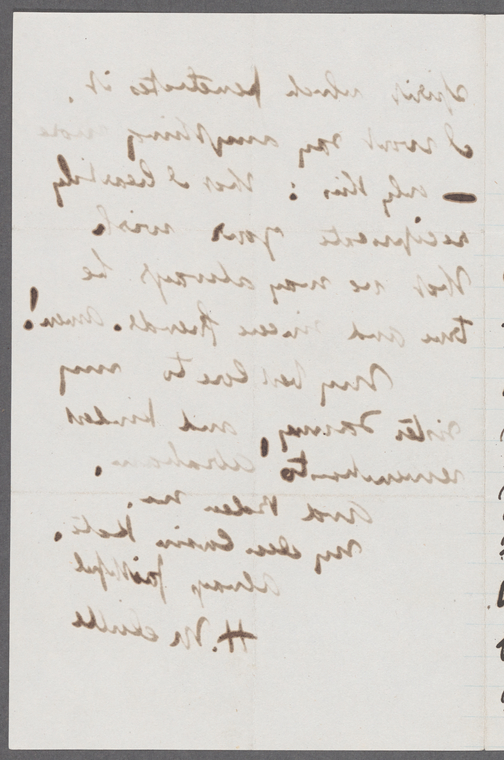 spirit which penetrates it.
I wont say anything more
— only this: that I heartily
reciprocate your wish
that we may always be
true and sincere friends. Amen!
My best love to my
sister Fanny, and kindest
remembrances to Abraham.
And believe me,
My dear Cousin Kate,
Always faithful
H. Melville